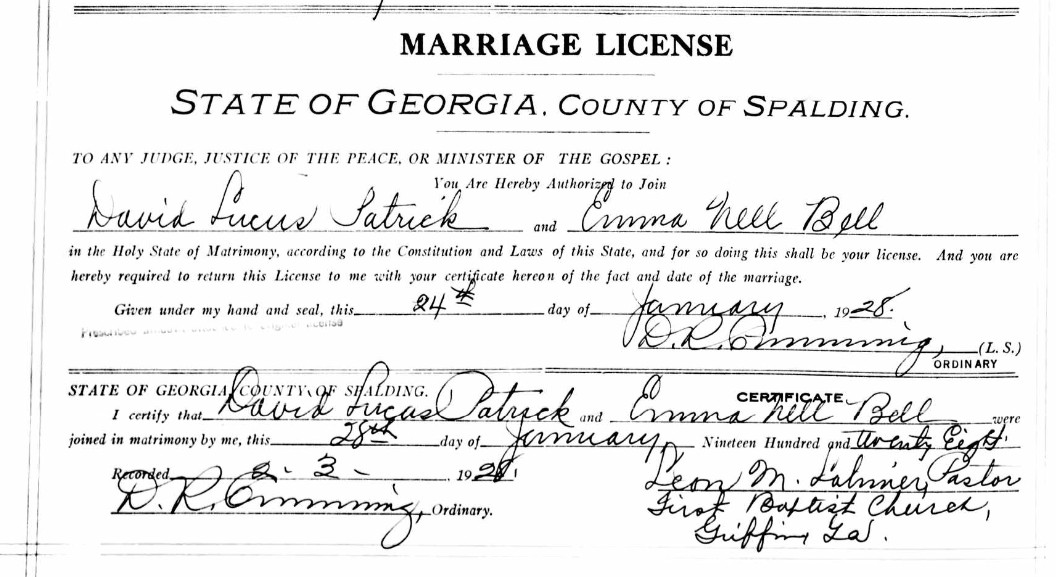 MARRIAGE LICENSE
STATE OF GEORGIA, COUNTY OF SPALDING.
TO ANY JUDGE, JUSTICE OF THE PEACE, OR MINISTER OF THE GOSPEL :
You Are Hereby Authorized to Join
David Lucus Patrick and Emma Nell Bell
in the Holy State of Matrimony, according to the Constitution and Laws of this State, and for so doing this shall be your license. And you are
hereby required to return this License to me with your certificate hereon of the fact and date of the marriage.
Given under my hand and seal, this 24th day of January, 1928.
D. R. Cumming, (L. S.)
ORDINARY
CERTIFICATE
STATE OF GEORGIA, COUNTY OF SPALDING.
I certify that David Lucas Patrick and Emma Nell Bell were
joined in matrimony by me, this 28th day of January, Nineteen Hundred and twenty Eight.
Recorded 2-3-1928.
Leon M. Pastor
D. R. Cumming, Ordinary.
First Baptist Church,
Griffin, Ga.